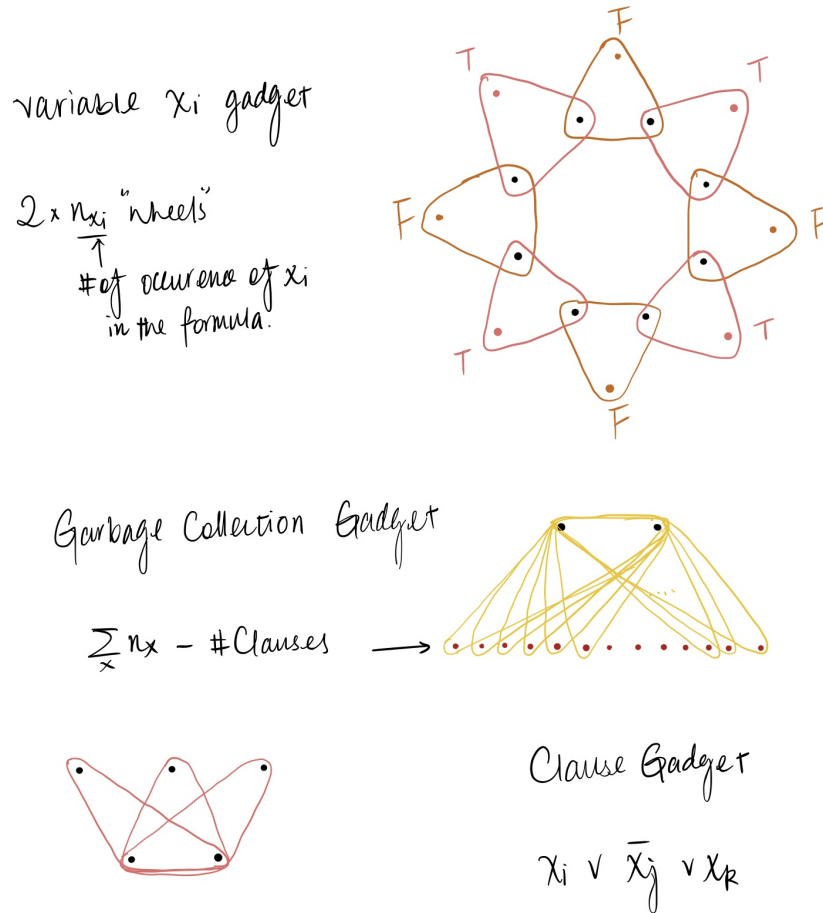 F
T
T
variable xᵢ gadget
2 × nₓᵢ "wheels"
↑
# of occurence of xᵢ
in the formula.
F
F
T
T
F
Garbage Collection Gadget
∑ₓ nₓ − #Clauses →
...
Clause Gadget
xᵢ ∨ x̄ⱼ ∨ xₖ